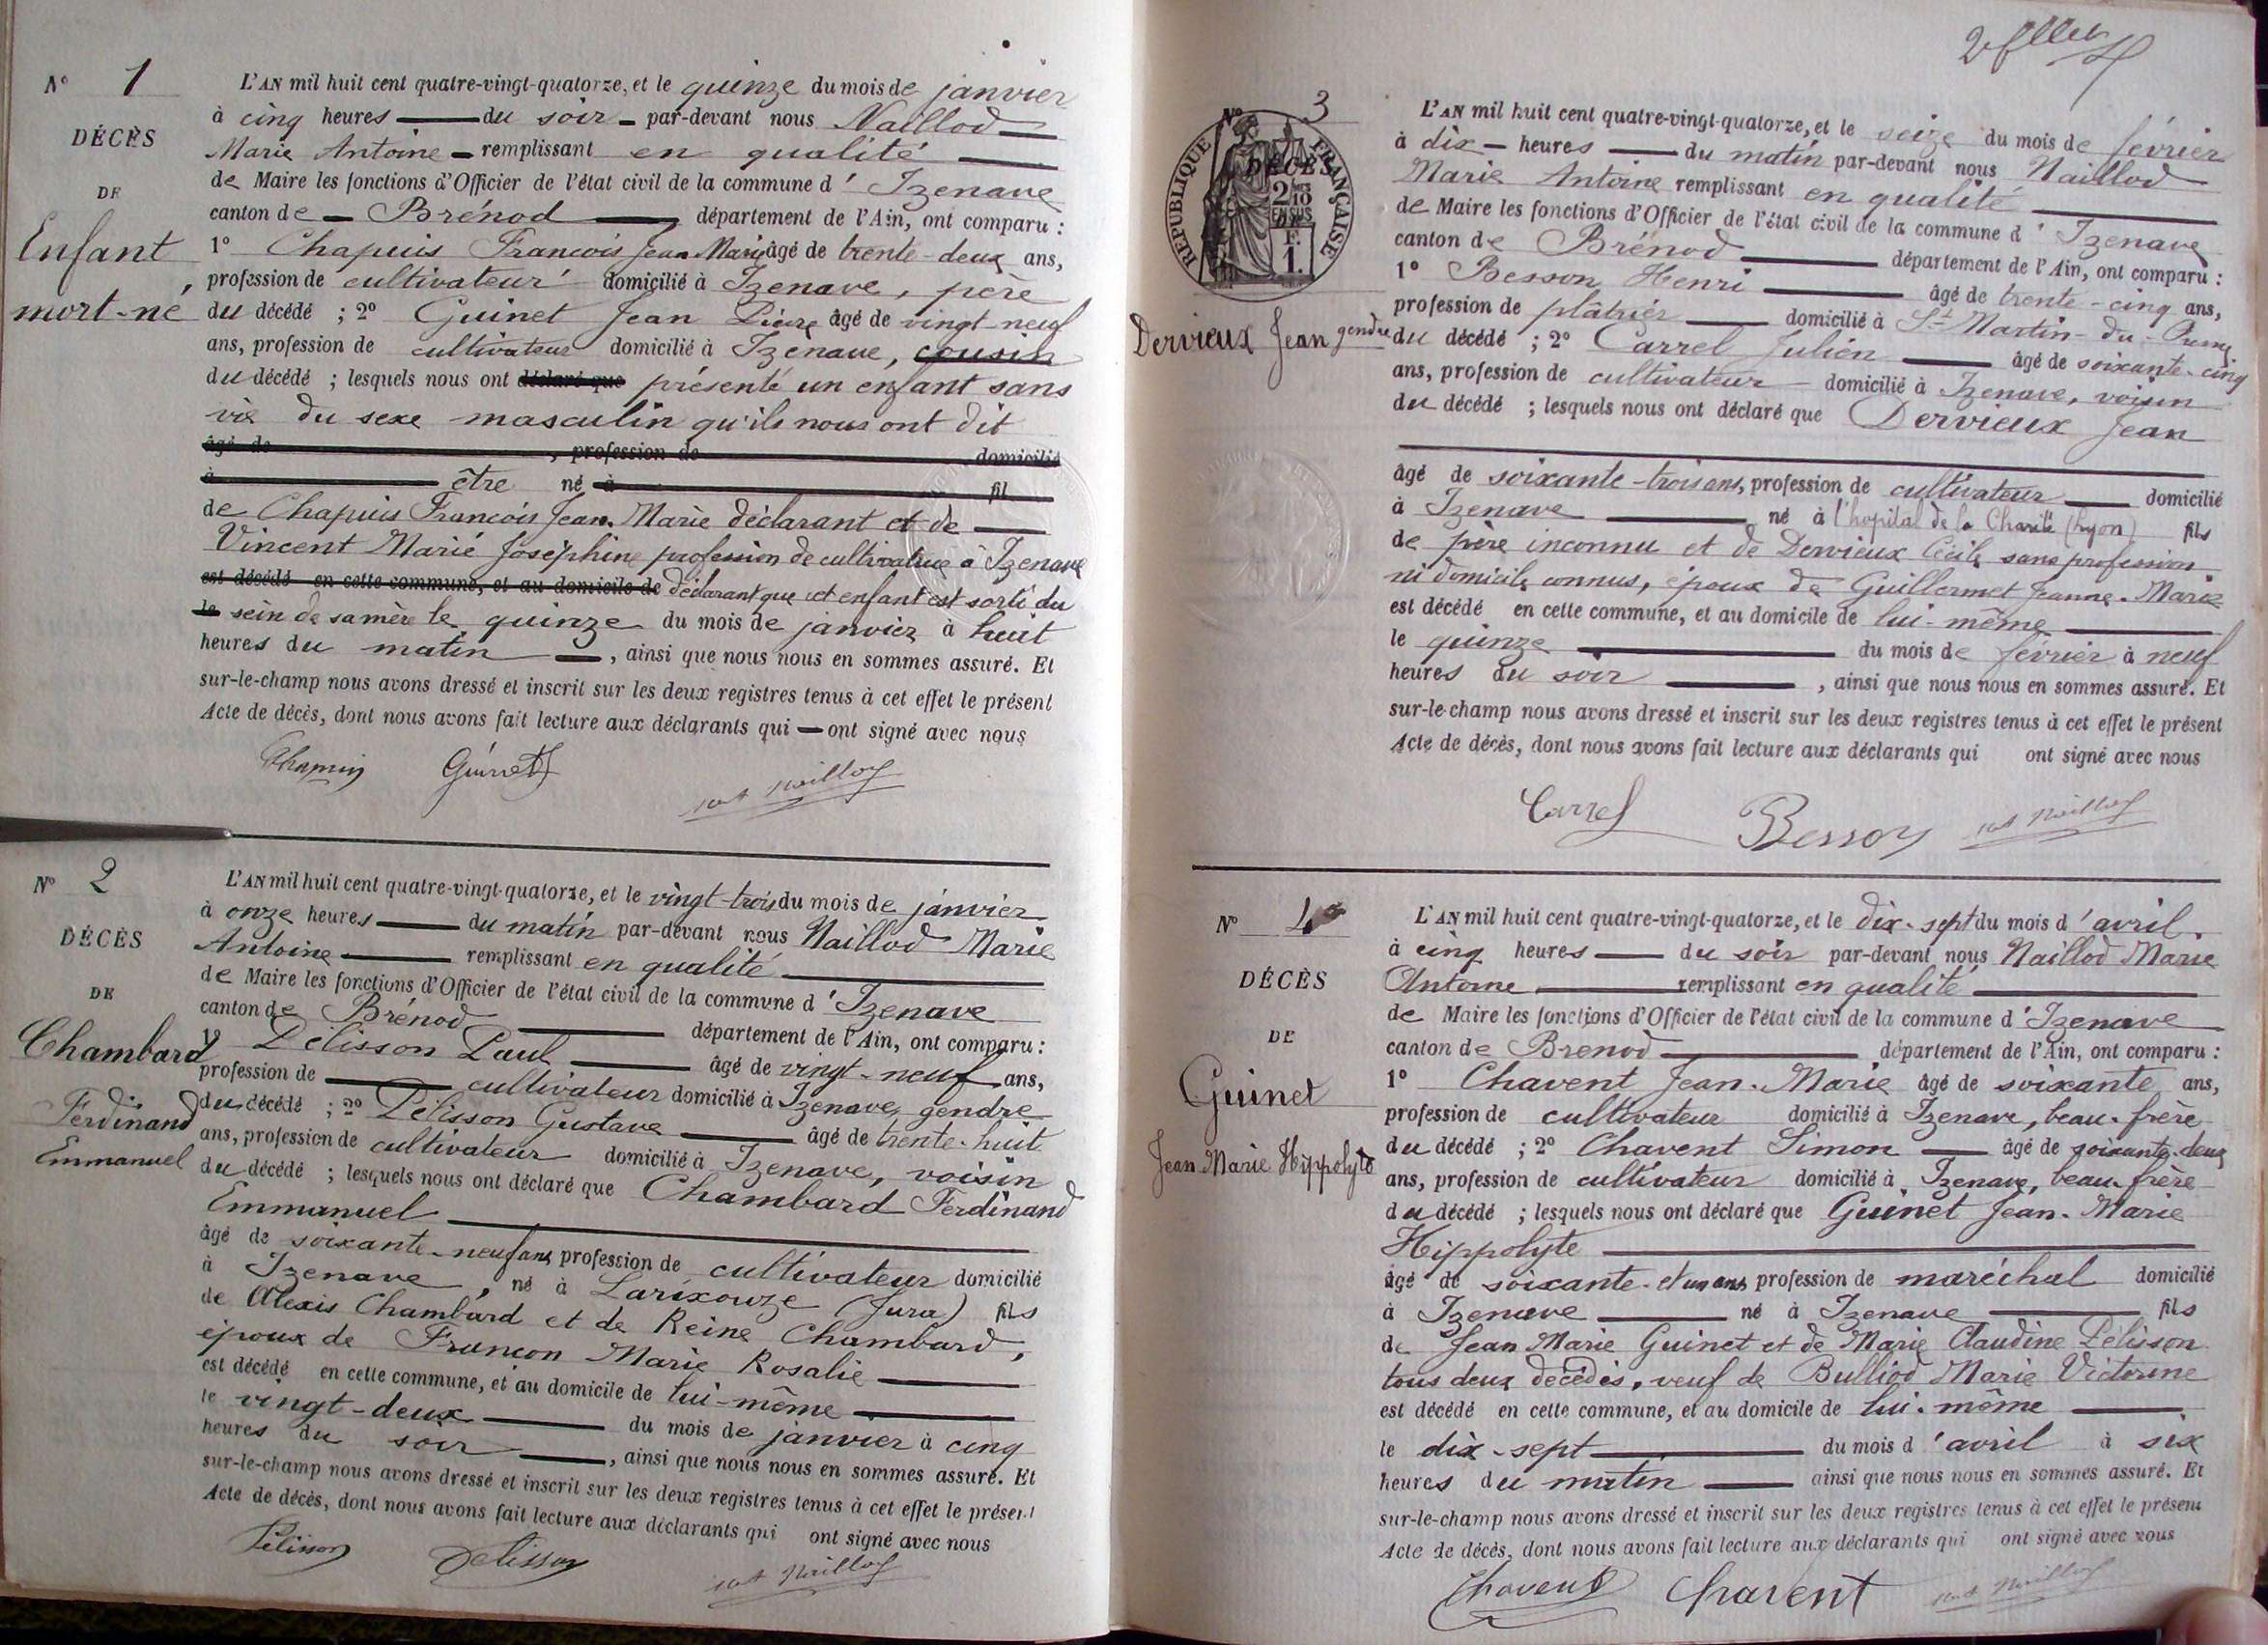 N° 1
DÉCÈS
DE
Enfant
mort-né
L'AN mil huit cent quatre-vingt-quatorze, et le quinze du mois de janvier
à cinq heures du soir par-devant nous Naillod
Marie Antoine remplissant en qualité
de Maire les fonctions d'Officier de l'état civil de la commune d'Izenave
canton de Brénod département de l'Ain, ont comparu :
1° Chapuis François Jean Marie âgé de trente-deux ans,
profession de cultivateur domicilié à Izenave, père
du décédé ; 2° Guinet Jean Pierre âgé de vingt-neuf
ans, profession de cultivateur domicilié à Izenave, cousin
du décédé ; lesquels nous ont déclaré que présenté un enfant sans
vie du sexe masculin qu'ils nous ont dit
âgé de , profession de domicilié
à être né à fil
de Chapuis François Jean-Marie déclarant et de
Vincent Marie Joséphine profession de cultivatrice à Izenave
est décédé en cette commune, et au domicile de déclarant que cet enfant est sorti du
le sein de sa mère le quinze du mois de janvier à huit
heures du matin , ainsi que nous nous en sommes assuré. Et
sur-le-champ nous avons dressé et inscrit sur les deux registres tenus à cet effet le présent
Acte de décès, dont nous avons fait lecture aux déclarants qui ont signé avec nous
Chapuis Guinet Naillod
N° 2
DÉCÈS
DE
Chambard
Ferdinand
Emmanuel
L'AN mil huit cent quatre-vingt-quatorze, et le vingt-trois du mois de janvier
à onze heures du matin par-devant nous Naillod Marie
Antoine remplissant en qualité
de Maire les fonctions d'Officier de l'état civil de la commune d'Izenave
canton de Brénod département de l'Ain, ont comparu :
1° Pélisson Paul âgé de vingt-neuf ans,
profession de cultivateur domicilié à Izenave, gendre
du décédé ; 2° Pélisson Gustave âgé de trente-huit
ans, profession de cultivateur domicilié à Izenave, voisin
du décédé ; lesquels nous ont déclaré que Chambard Ferdinand
Emmanuel
âgé de soixante-neuf ans profession de cultivateur domicilié
à Izenave, né à Larixouze (Jura) fils
de Alexis Chambard et de Reine Chambard,
époux de Françon Marie Rosalie
est décédé en cette commune, et au domicile de lui-même
le vingt-deux du mois de janvier à cinq
heures du soir , ainsi que nous nous en sommes assuré. Et
sur-le-champ nous avons dressé et inscrit sur les deux registres tenus à cet effet le présent
Acte de décès, dont nous avons fait lecture aux déclarants qui ont signé avec nous
Pélisson Pelisson Naillod
N° 3
DÉCÈS
RÉPUBLIQUE FRANÇAISE
2/10
EN SUS
F.
1.
Dervieux Jean
L'AN mil huit cent quatre-vingt-quatorze, et le seize du mois de février
à dix heures du matin par-devant nous Naillod
Marie Antoine remplissant en qualité
de Maire les fonctions d'Officier de l'état civil de la commune d'Izenave
canton de Brénod département de l'Ain, ont comparu :
1° Besson Henri âgé de trente-cinq ans,
profession de plâtrier domicilié à St Martin-du-
gendre du décédé ; 2° Carrel Julien âgé de soixante-cinq
ans, profession de cultivateur domicilié à Izenave, voisin
du décédé ; lesquels nous ont déclaré que Dervieux Jean
âgé de soixante-trois ans, profession de cultivateur domicilié
à Izenave né à l'hopital de la Charité (Lyon) fils
de père inconnu et de Dervieux Cécile sans profession
ni domicile connus, époux de Guillermet Jeanne-Marie
est décédé en cette commune, et au domicile de lui-même
le quinze du mois de février à neuf
heures du soir , ainsi que nous nous en sommes assuré. Et
sur-le-champ nous avons dressé et inscrit sur les deux registres tenus à cet effet le présent
Acte de décès, dont nous avons fait lecture aux déclarants qui ont signé avec nous
Carrel Besson Naillod
N° 4
DÉCÈS
DE
Guinet
Jean Marie Hippolyte
L'AN mil huit cent quatre-vingt-quatorze, et le dix-sept du mois d'avril
à cinq heures du soir par-devant nous Naillod Marie
Antoine remplissant en qualité
de Maire les fonctions d'Officier de l'état civil de la commune d'Izenave
canton de Brenod département de l'Ain, ont comparu :
1° Chavent Jean-Marie âgé de soixante ans,
profession de cultivateur domicilié à Izenave, beau-frère
du décédé ; 2° Chavent Simon âgé de soixante-deux
ans, profession de cultivateur domicilié à Izenave, beau-frère
du décédé ; lesquels nous ont déclaré que Guinet Jean-Marie
Hippolyte
âgé de soixante-et un ans profession de maréchal domicilié
à Izenave né à Izenave fils
de Jean Marie Guinet et de Marie Claudine Pélisson
tous deux décédés, veuf de Bulliod Marie Victorine
est décédé en cette commune, et au domicile de lui-même
le dix-sept du mois d'avril à six
heures du matin ainsi que nous nous en sommes assuré. Et
sur-le-champ nous avons dressé et inscrit sur les deux registres tenus à cet effet le présent
Acte de décès, dont nous avons fait lecture aux déclarants qui ont signé avec nous
Chavent Chavent Naillod